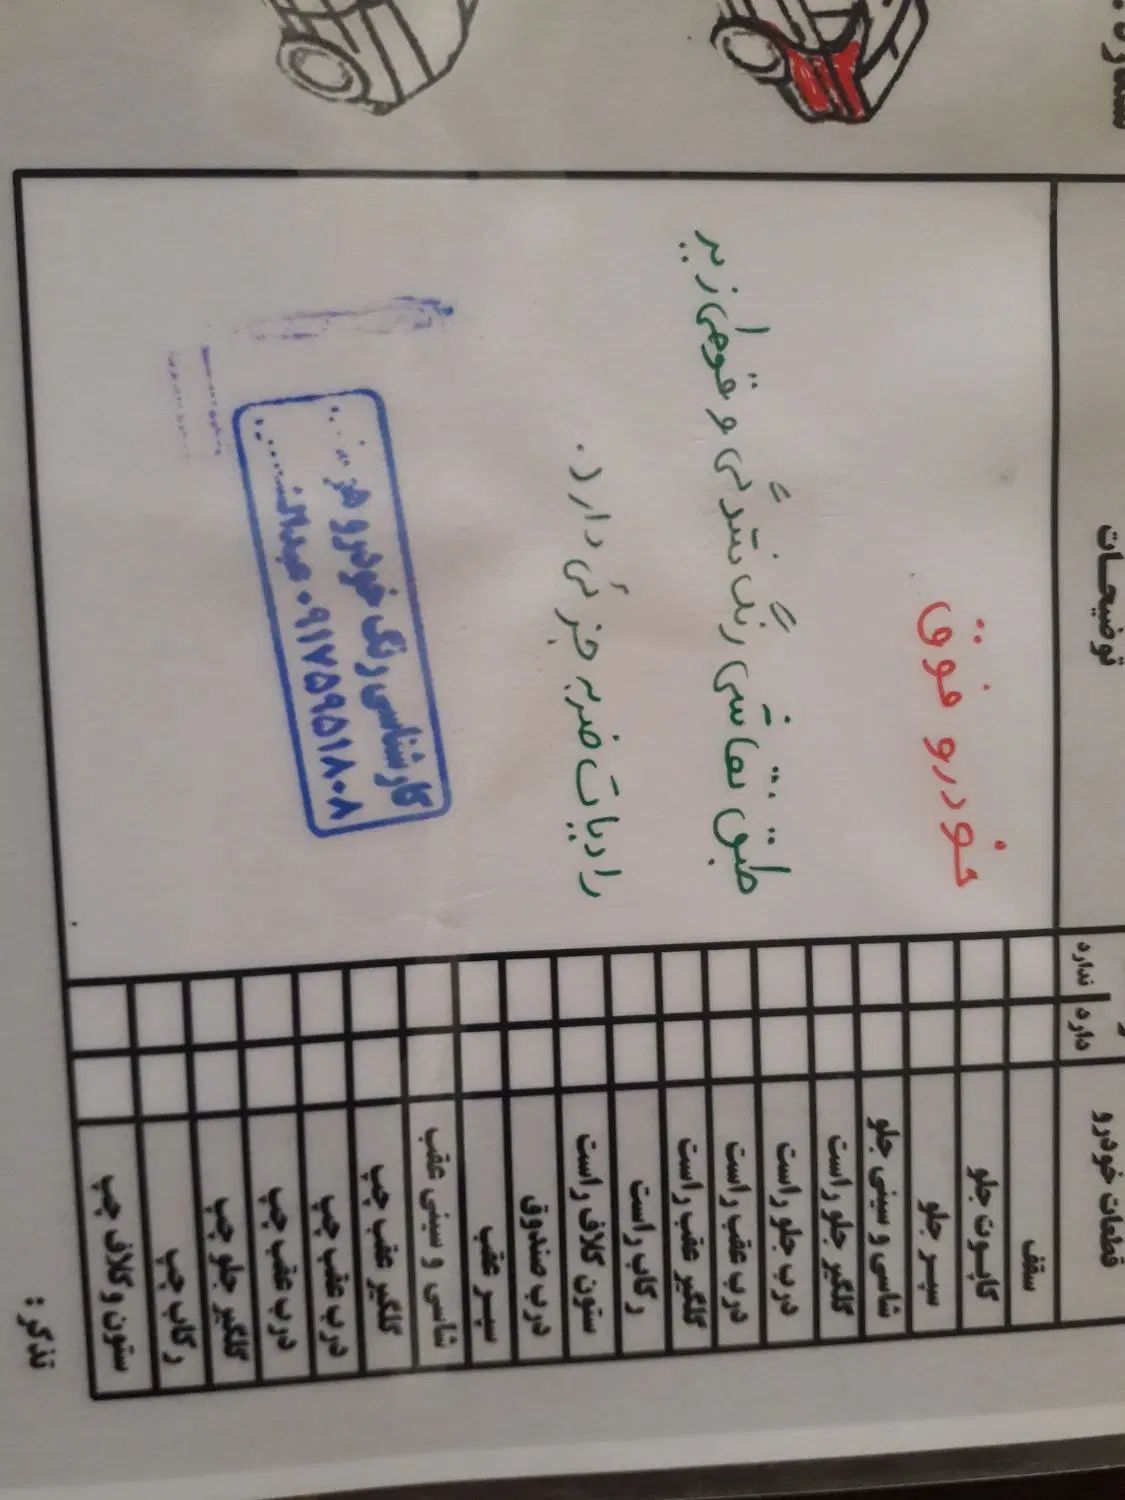 توضیحات
خودرو فوق
طبق نقاشی رنگ شدگی و قوطی زیر
رادیات ضربه جزئی دارد.
کارشناسی رنگ خودرو
۰۹۱۷۵۹۵۱۸۰۸
دارد ندارد
قطعات خودرو
سقف
کاپوت جلو
سپر جلو
شاسی و سینی جلو
گلگیر جلو راست
درب جلو راست
درب عقب راست
گلگیر عقب راست
رکاب راست
ستون کلاف راست
درب صندوق
سپر عقب
شاسی و سینی عقب
گلگیر عقب چپ
درب عقب چپ
درب عقب چپ
گلگیر جلو چپ
رکاب چپ
ستون و کلاف چپ
تذکر :